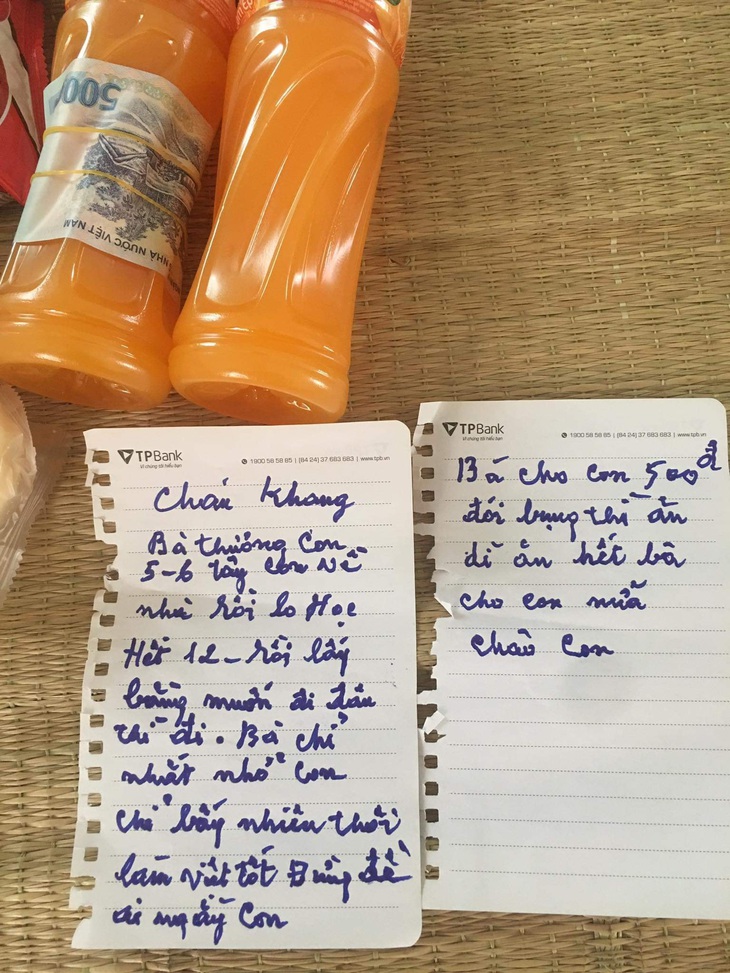 500
NHÀ NƯỚC VIỆT NAM
TPBank
Vì chúng tôi hiểu bạn
1900 58 58 85 | (84 24) 37 683 683 | www.tpb.vn
Cháu Khang
Bà thưởng Con
5-6 con về
nhà rồi lo Học
Hết 12 - rồi lấy
bằng muốn đi đâu
thì đi. Bà chỉ
nhất nhở Con
chỉ bấy nhiêu thôi
làm viết tốt Đừng để
đi ngẩy Con
TPBank
Vì chúng tôi hiểu bạn
1900 58 58 85 | (84 24) 37 683 683 | www.tpb.vn
Bá cho con 500đ
đói bụng thì ăn
đi ăn hết bà
cho con nữa
chào Con